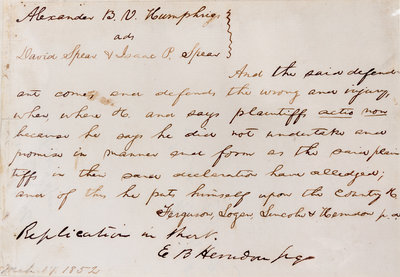 Alexander B. V. Humphrys
ads
David Spear & Isaac P. Spear
And the said defend-
ant comes and defends the wrong and injury,
when, where &c. and says plaintiffs actio non
because he says he did not undertake and
promise in manner and form as the said plain-
tiffs in their said declaration have alledged;
and of this he puts himself upon the County &c
Ferguson, Logan, Lincoln & Herndon p. d.
Replication in short.
E B Herndon
1852